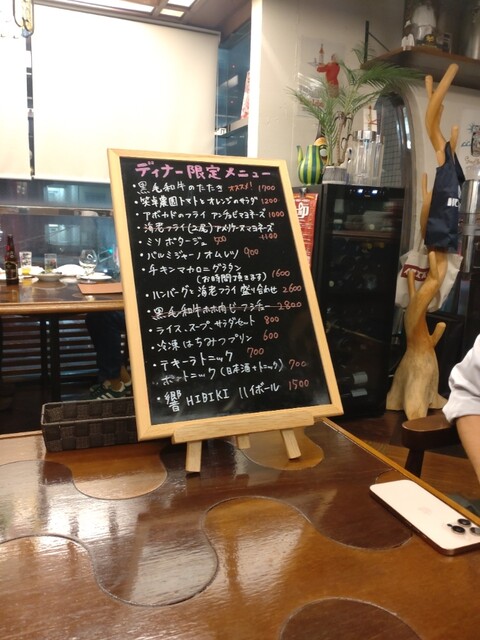 ディナー限定メニュー
・黒毛和牛のたたき オススメ! 1700
・安井農園トマトとオレンジのサラダ 1200
・アボカドのフライ アンチョビマヨネーズ 1000
・海老フライ(二尾)アメリケーヌマヨネーズ 1100
・ミソポタージュ 500
・パルミジャーノオムレツ 900
・チキンマカロニグラタン
(お時間頂きます) 1600
・ハンバーグと海老フライ盛り合わせ 2600
・黒毛和牛ホホ肉ビーフシチュー 2800
・ライス、スープ、サラダセット 800
・冷凍はちみつプリン 600
・テキーラトニック 700
・ポントニック(日本酒+トニック) 700
・響 HIBIKI ハイボール 1500